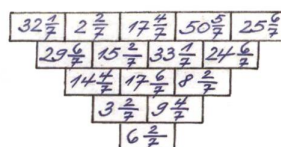 32 1/7 2 2/7 17 4/7 50 5/7 25 6/7
29 6/7 15 2/7 33 1/7 24 6/7
14 4/7 17 6/7 8 2/7
3 2/7 9 4/7
6 2/7